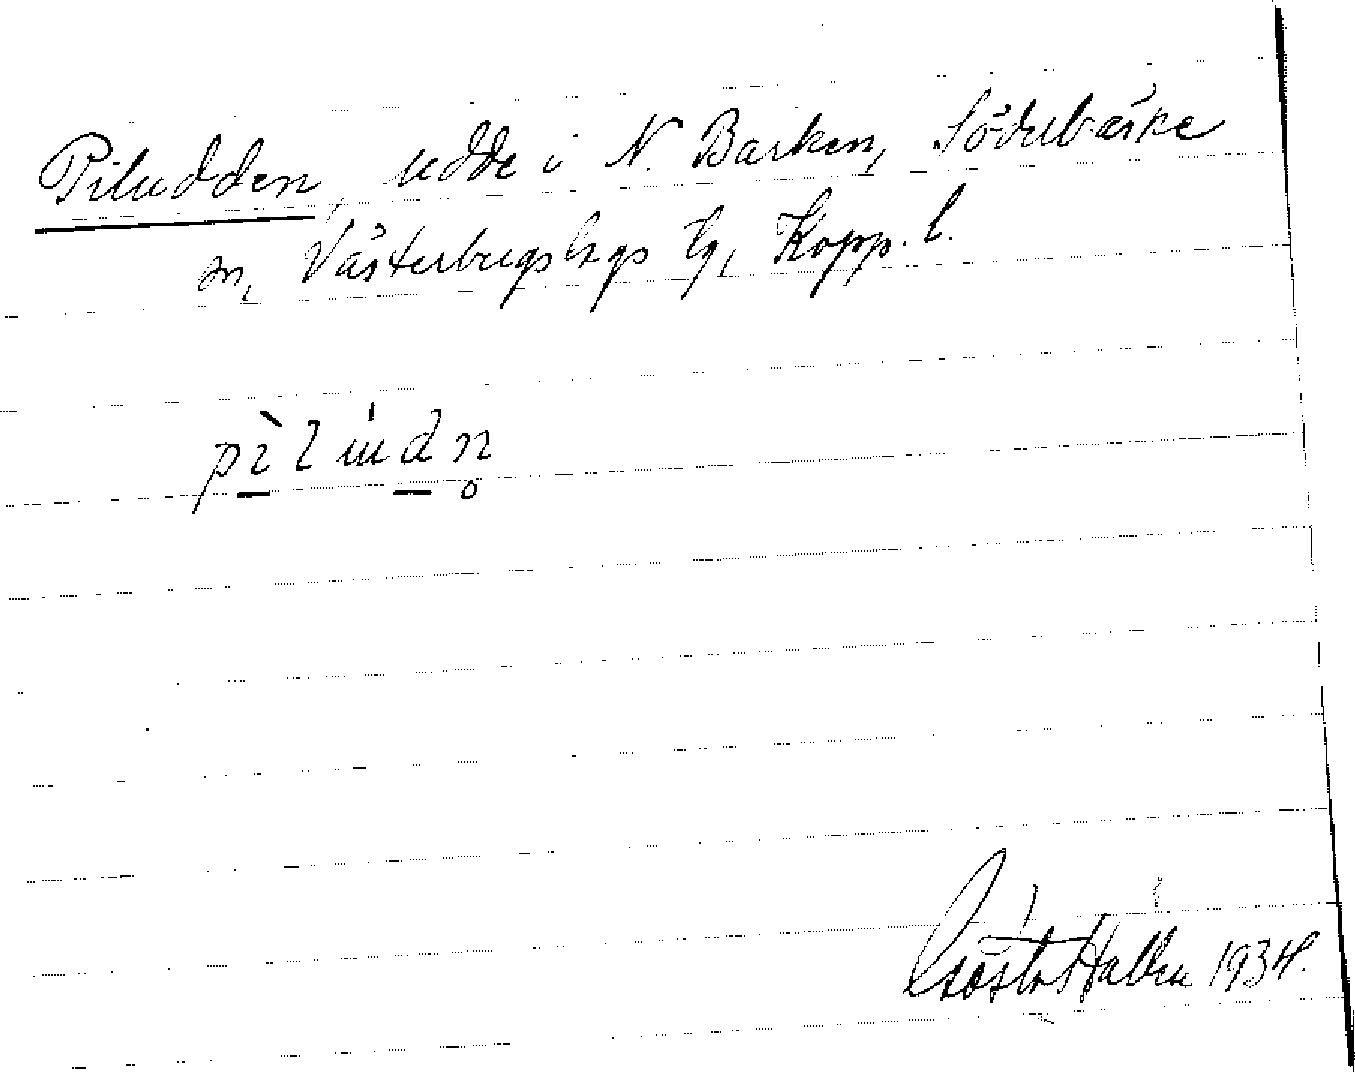 Piludden, udde i N. Barken, Söderbärke
sn, Västerbergslags
Kopp. l.
Gösta Hallén 1934.